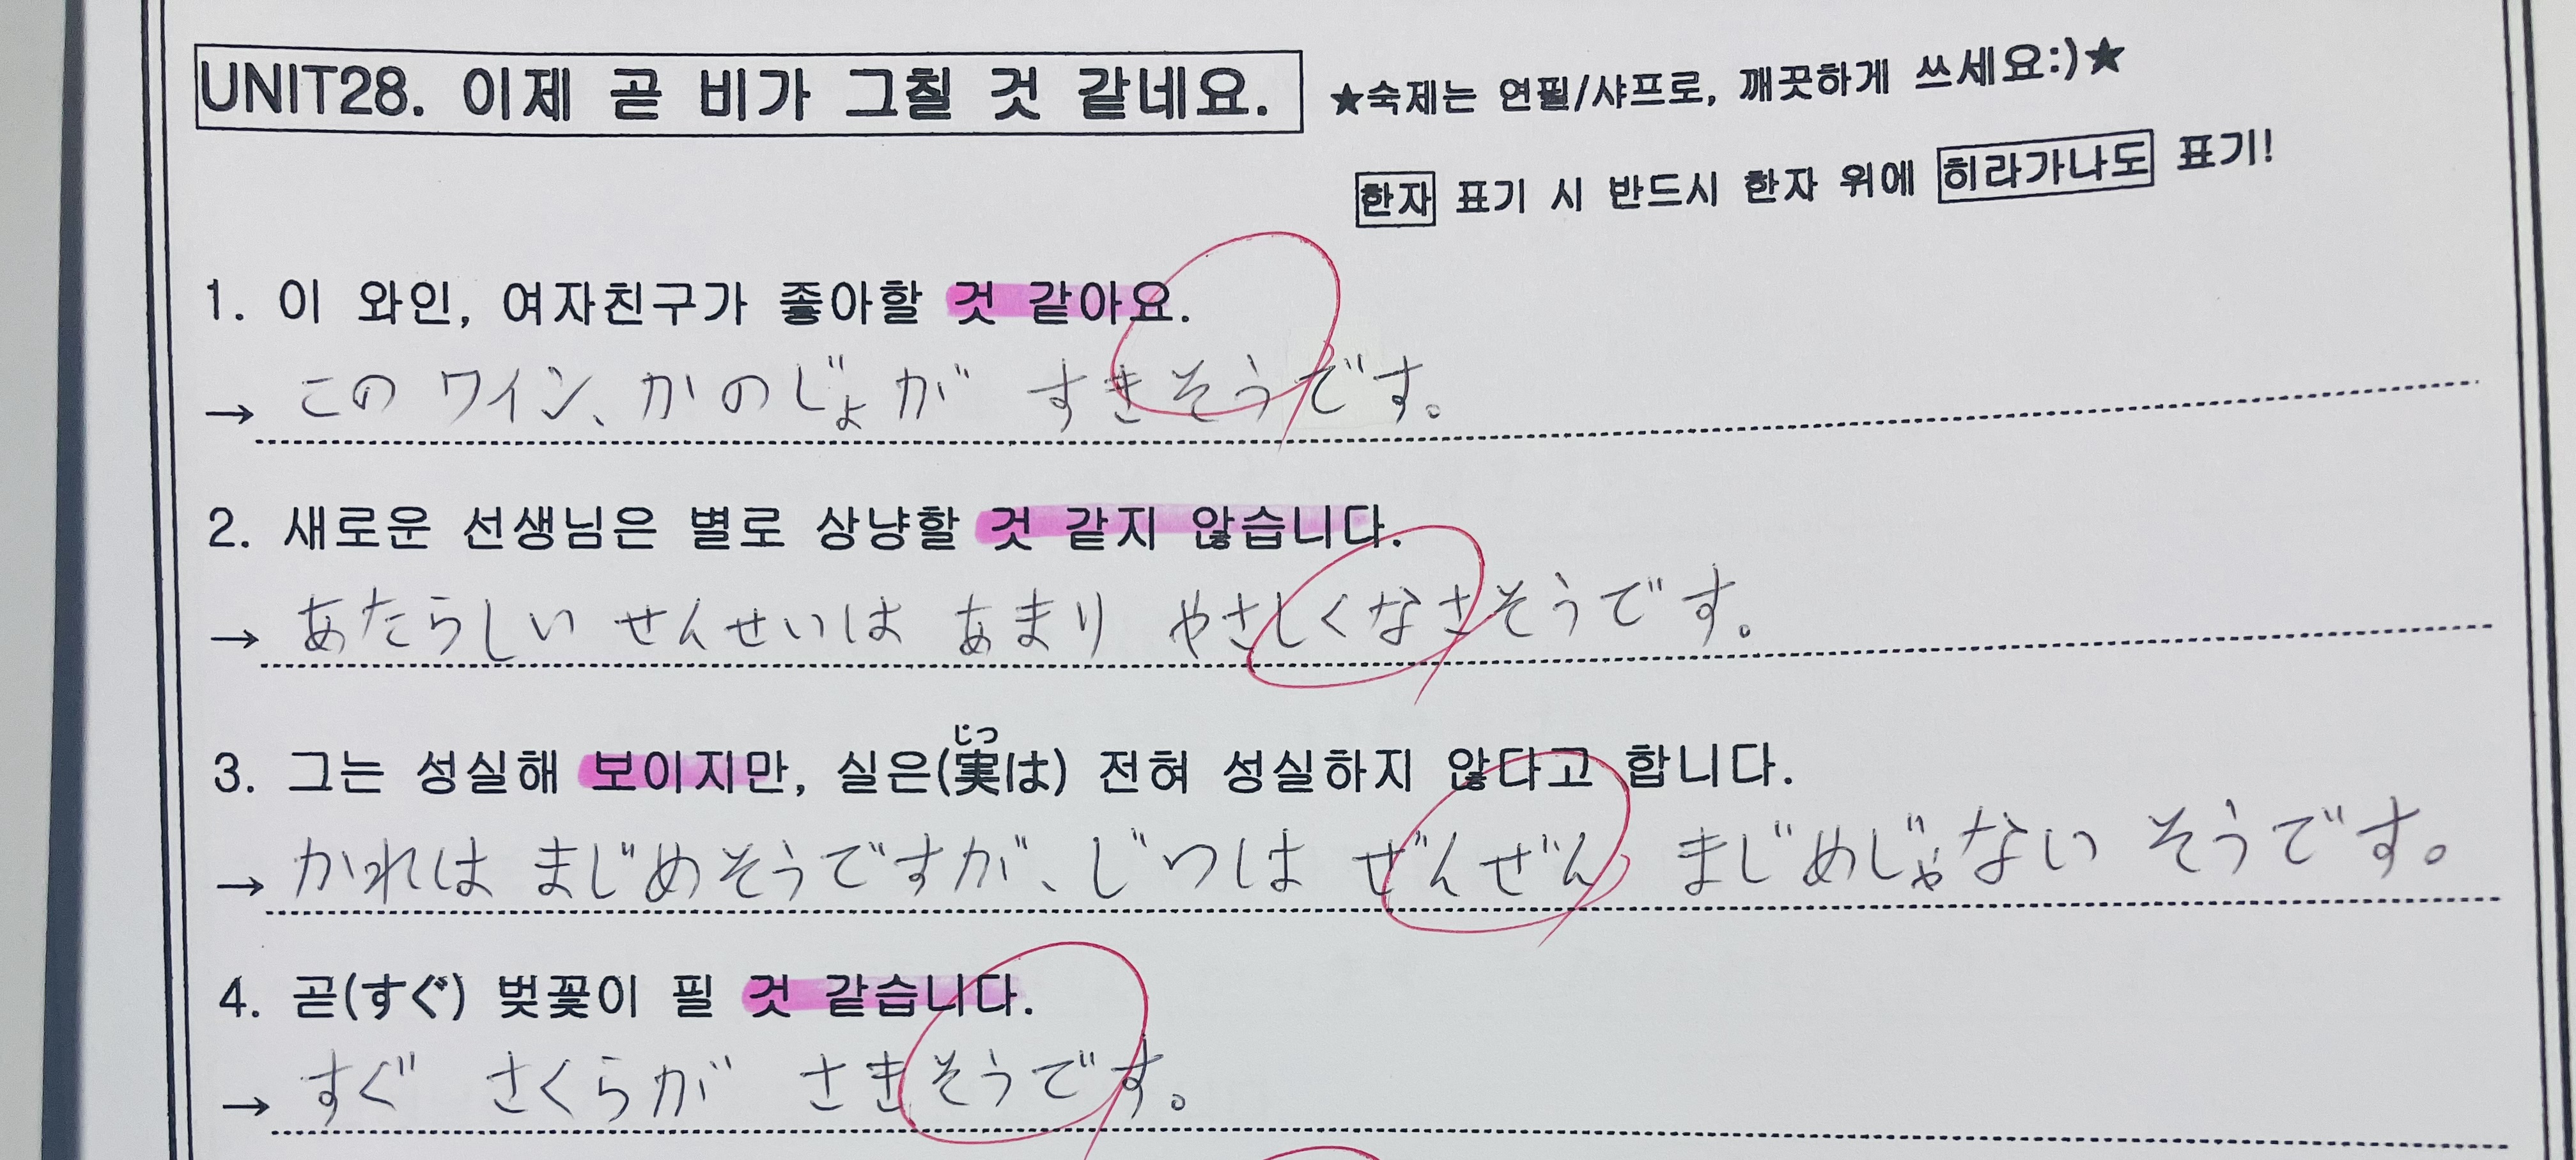 UNIT28. 이제 곧 비가 그칠 것 같네요.
★숙제는 연필/샤프로, 깨끗하게 쓰세요:)★
한자 표기 시 반드시 한자 위에 히라가나도 표기!
1. 이 와인, 여자친구가 좋아할 것 같아요.
→ この ワイン、かのじょが すきそうです。
2. 새로운 선생님은 별로 상냥할 것 같지 않습니다.
→ あたらしい せんせいは あまり やさしくなさそうです。
じつ
3. 그는 성실해 보이지만, 실은(実は) 전혀 성실하지 않다고 합니다.
→ かれは まじめそうですが、じつは ぜんぜん まじめじゃない そうです。
4. 곧(すぐ) 벚꽃이 필 것 같습니다.
→ すぐ さくらが さきそうです。